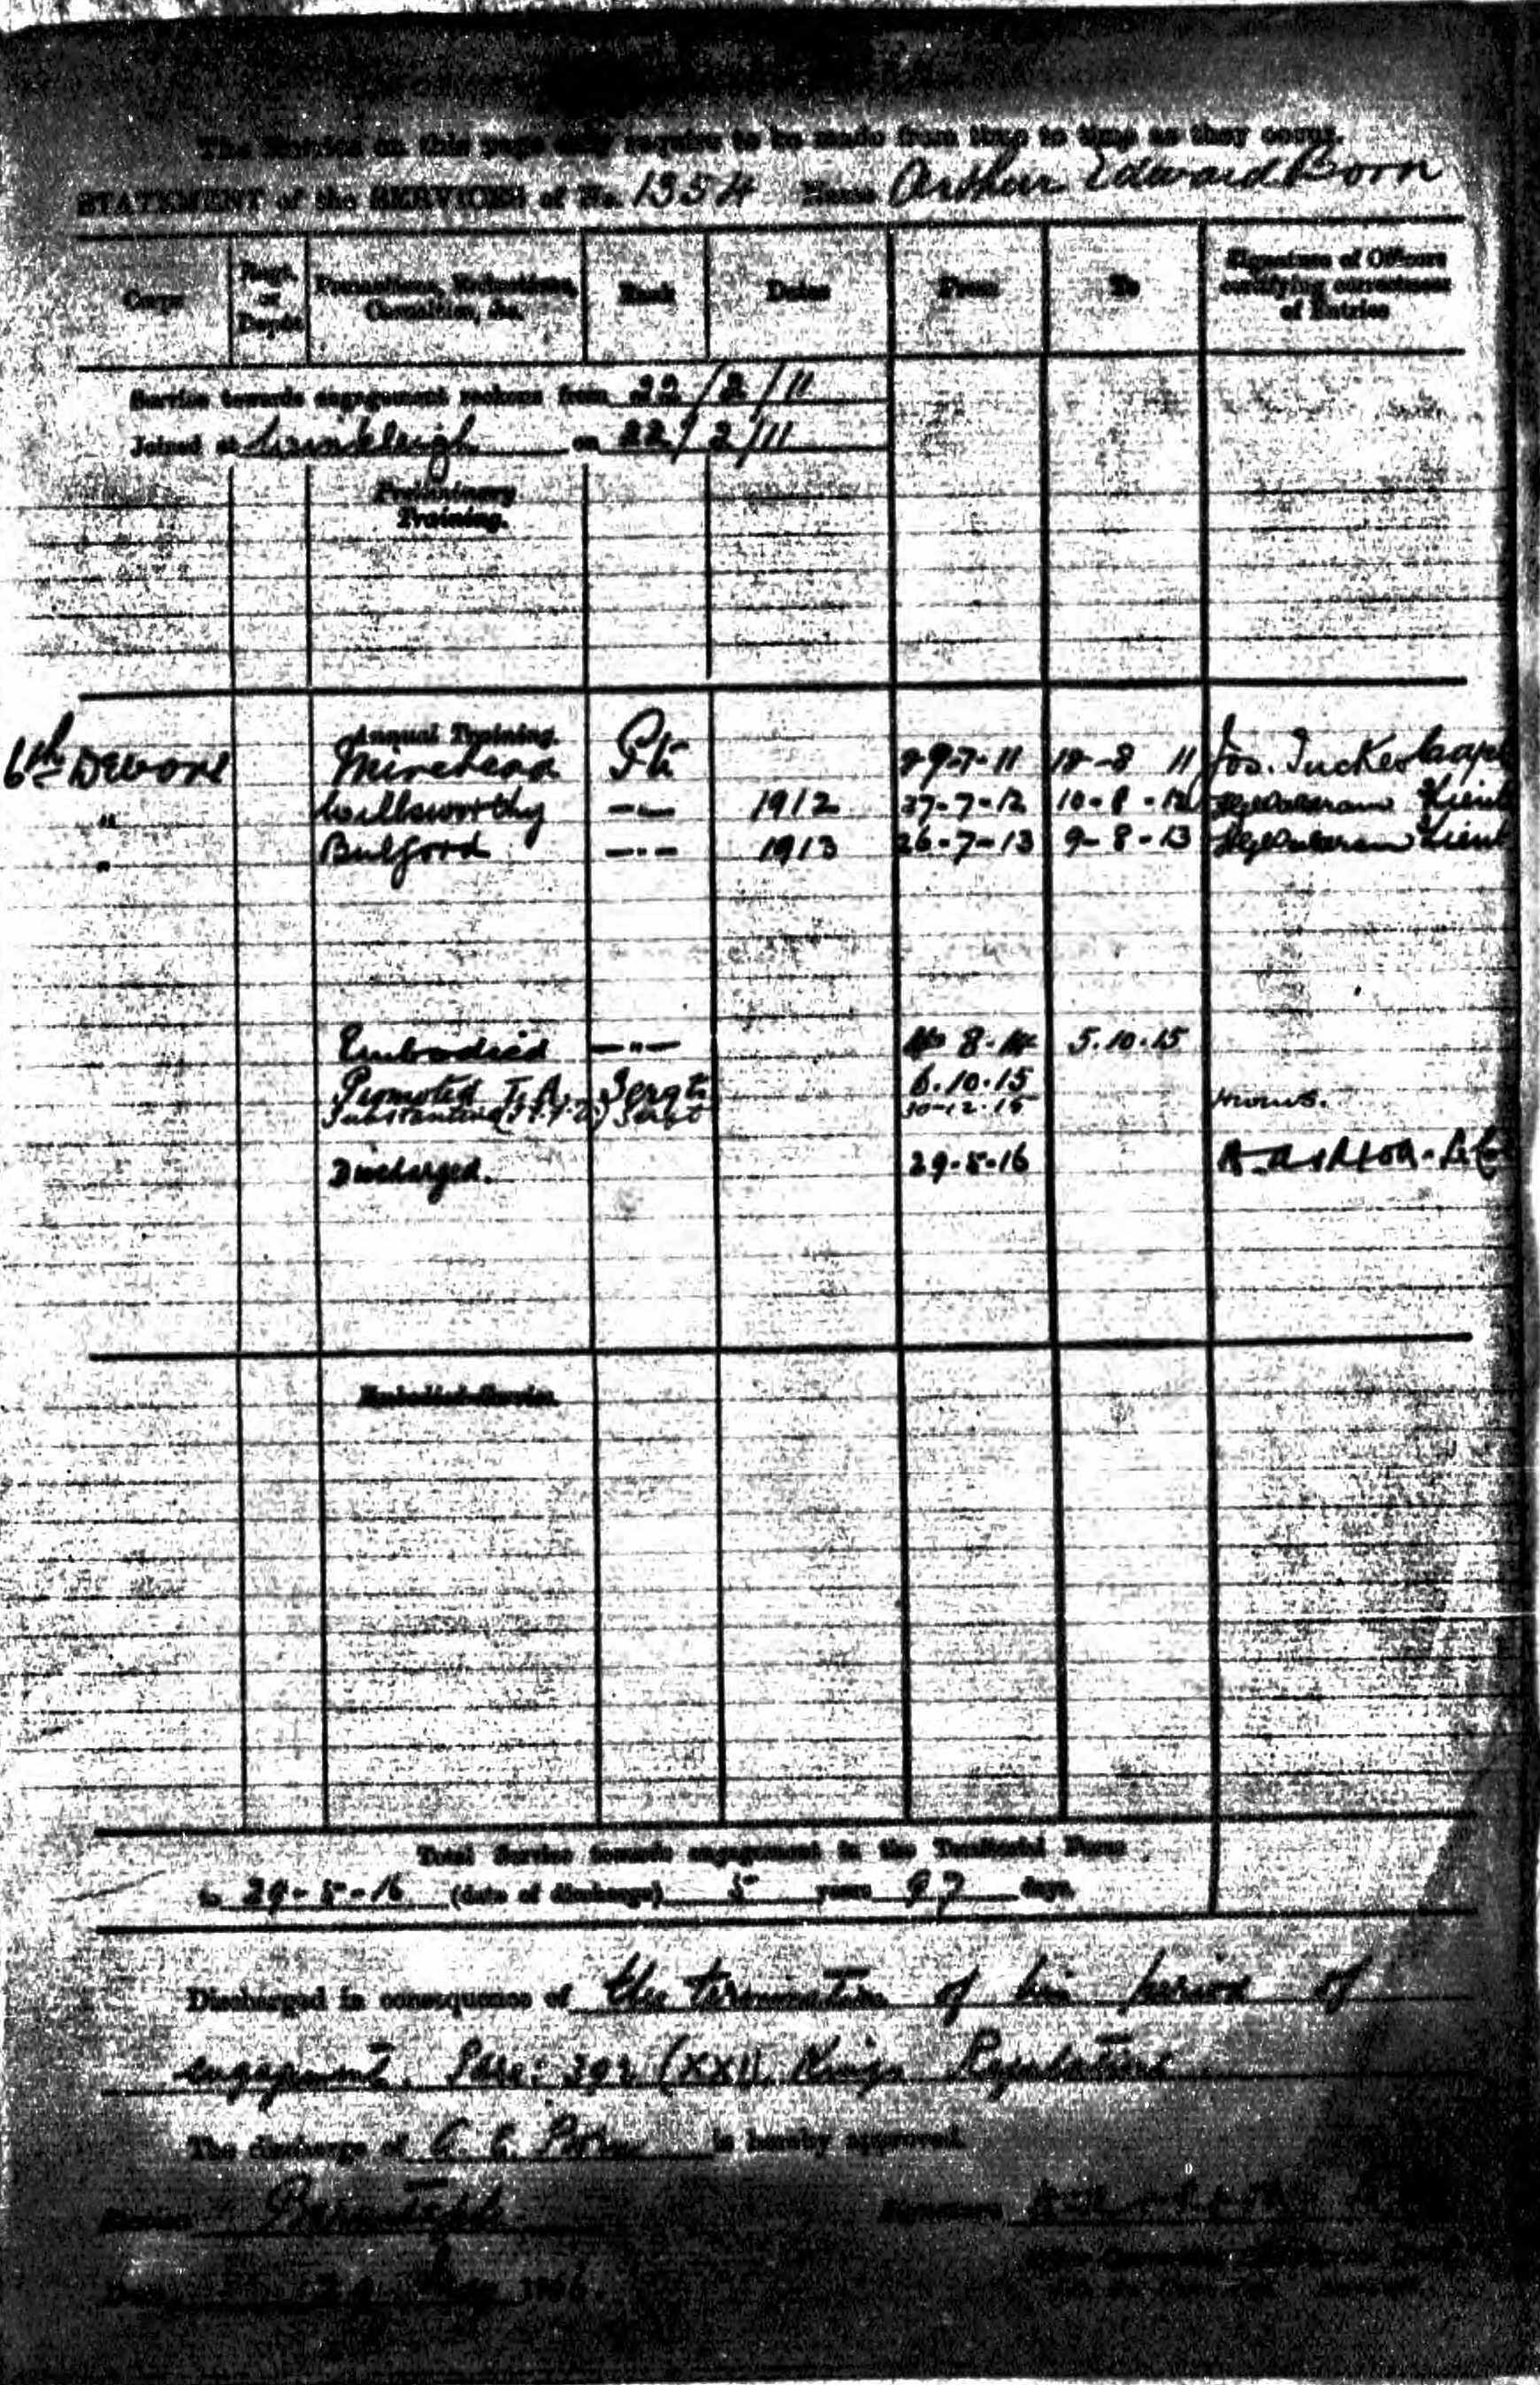 The Entries on this page only require to be made from time to time as they occur.
STATEMENT of the SERVICES of No. 1354 Name Arthur Edward Born
Corps
Regt. or Depôt
Promotions, Reductions, Casualties, &c.
Rank
Dates
From
To
Signature of Officers certifying correctness of Entries
Service towards engagement reckons from 22/2/11
Joined at Winkleigh on 22/2/11
Preliminary Training.
Annual Training.
6th Devons Minehead Pte 29-7-11 12-8 11 Jos. Tucker Capt
" Willsworthy —"— 1912 27-7-12 10-8-12 Lieut
" Bulford —"— 1913 26-7-13 9-8-13 Lieut
Embodied —"— 8.14 5.10.15
Promoted T.A. Sergt 6.10.15
Substantive Sergt 10-12-15
Discharged. 29.5.16
Embodied Service.
Total Service towards engagement in the Territorial Force
to 29-5-16 (date of discharge) 5 years 97 days.
Discharged in consequence of the termination of his period of
engagement. Para: 392 (XXI) Kings Regulations
The discharge of A. E. Born is hereby approved.
Station Barnstaple Signature
Date